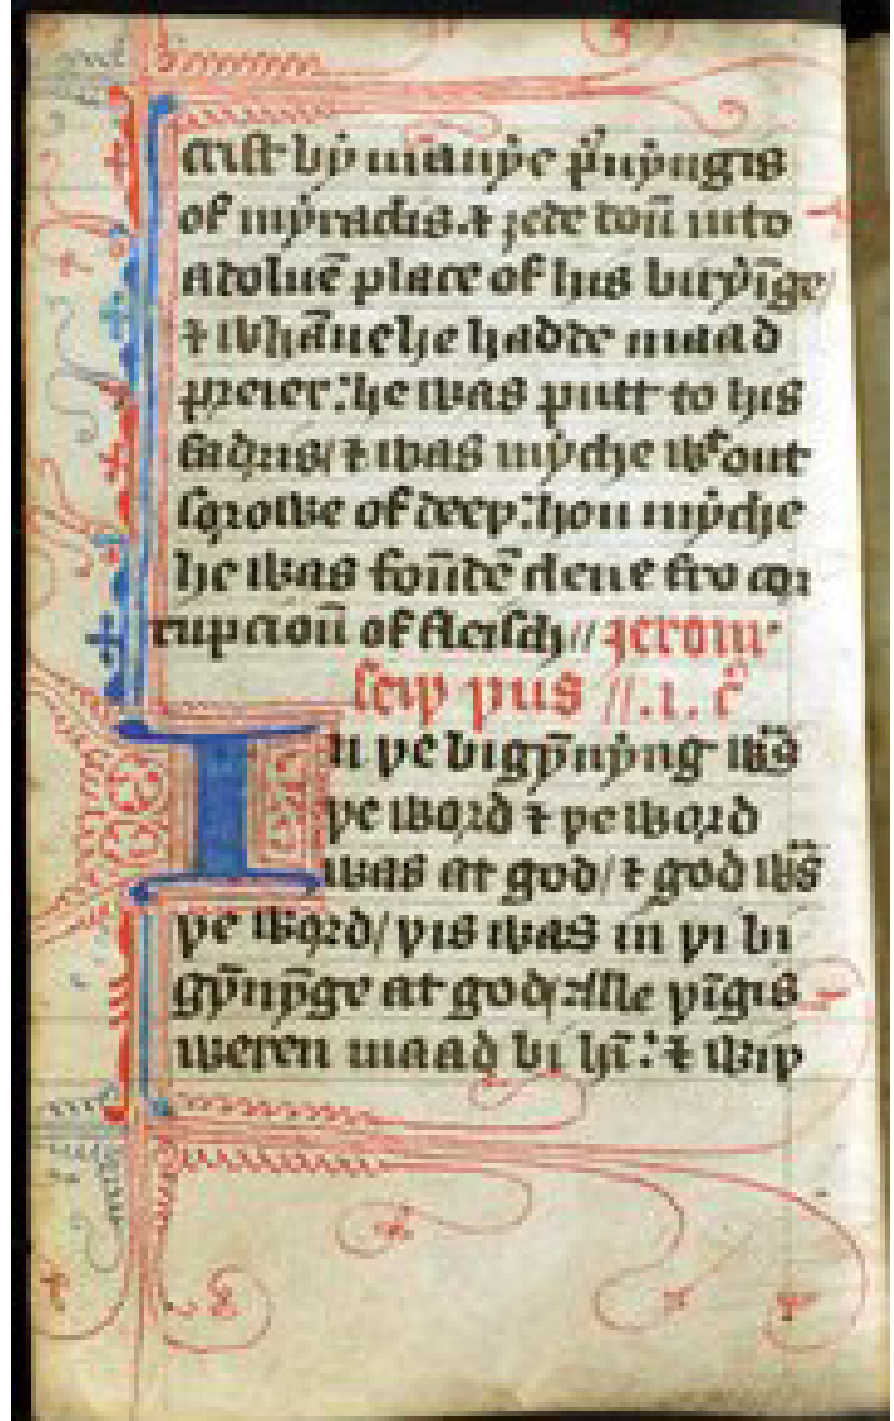 crist bẏ manẏe p̉uẏngis
of mẏraclis.⁊ ȝede doū into
a doluē place of his birẏīge/
⁊ whāne he hadde maad
preier:̓ he was putt to his
fadris/ ⁊ was mẏche wᵗout
sorowe of deeþ:̓ hou mẏche
he was foūdē clene fro cor
rupcioū of fleisch// Jerom̓
seiþ þus //.i. c̊
In þe bigẏ̄nẏng was
þe word ⁊ þe word
was at god/ ⁊ god was
þe word/ þis was in þi bi
gẏ̄nẏ̄ge at god/:̓ Alle þīgis
weren maad bi hī:̓ ⁊ wiþ